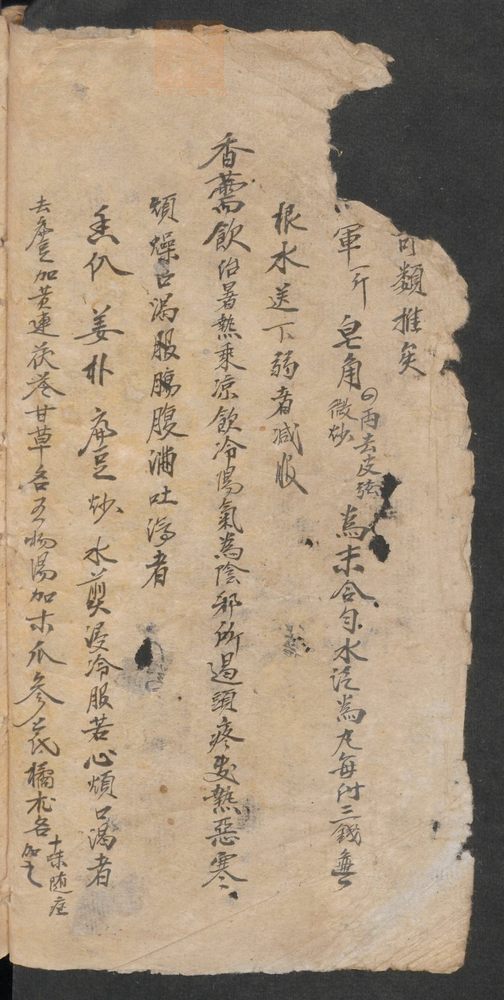 可類推矣
軍一斤 皂角四兩去皮弦微炒 為末合勻水泛為丸每付三錢
根水送下弱者減服
香薷飲治暑熱乘涼飲冷陽氣為陰邪所遏頭疼發熱惡寒
煩燥口渴服腸腹滿吐瀉者
姜朴 扁豆炒 水煎浸冷服若心煩口渴者
去扁豆加黃連茯苓甘草名五物湯加木瓜參芪橘朮名十味隨症